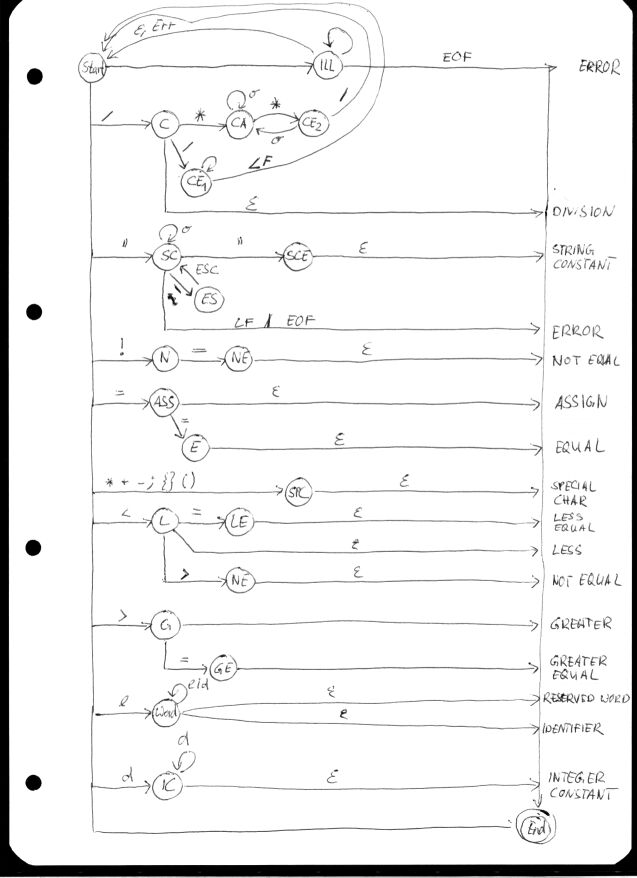 ε, Err
Start
ILL
EOF
ERROR
/
C
*
σ
CA
*
CE2
/
σ
/
CE1
LF
ε
DIVISION
"
σ
SC
"
SCE
ε
STRING
CONSTANT
ESC
ES
LF
EOF
ERROR
!
N
=
NE
ε
NOT EQUAL
=
ASS
ε
ASSIGN
=
E
ε
EQUAL
* + - ; {} ()
SPC
ε
SPECIAL
CHAR
<
L
=
LE
ε
LESS
EQUAL
ε
LESS
>
NE
ε
NOT EQUAL
>
G
GREATER
=
GE
GREATER
EQUAL
l
l/d
Word
ε
RESERVED WORD
ε
IDENTIFIER
d
d
IC
ε
INTEGER
CONSTANT
End